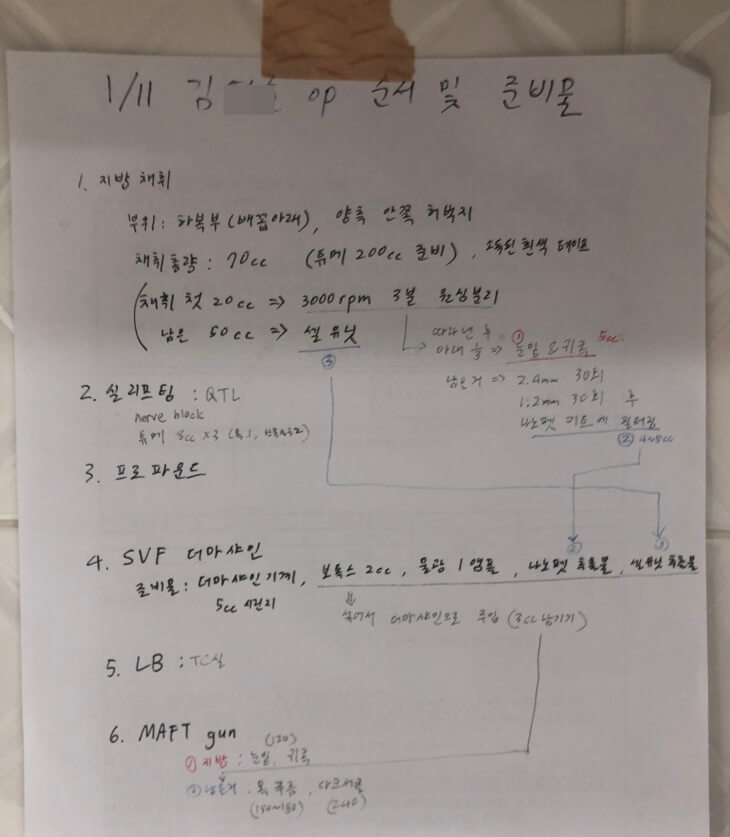 1/11 김 op 순서 및 준비물
1. 지방 채취
부위: 하복부(배꼽아래), 양측 안쪽 허벅지
채취총량: 70cc (튜메 200cc 준비), 소독된 흰색 테이프
채취 첫 20cc => 3000rpm 3분 원심분리
남은 50cc => 셀 유닛
③
따라낸 후
아래 층 => ① 눈밑 5cc
남은거 => 2.4mm 30회
1.2mm 30회 후
나노팻 키트에 필터링
② 4~5cc
2. 실리프팅 : QTL
nerve block
튜메 8cc x3
3. 프로파운드
② ③
4. SVF 더마샤인
준비물: 더마샤인기계, 보톡스 2cc, 물광 1앰플, 나노팻 추출물, 셀유닛 추출물
5cc 시린지
섞어서 더마샤인으로 주입 (3cc 남기기)
5. LB : TC실
6. MAFT gun
(120)
① 지방 : 눈밑, 귀족
② 남은거 : 목주름, 다크서클
(150~180) (240)